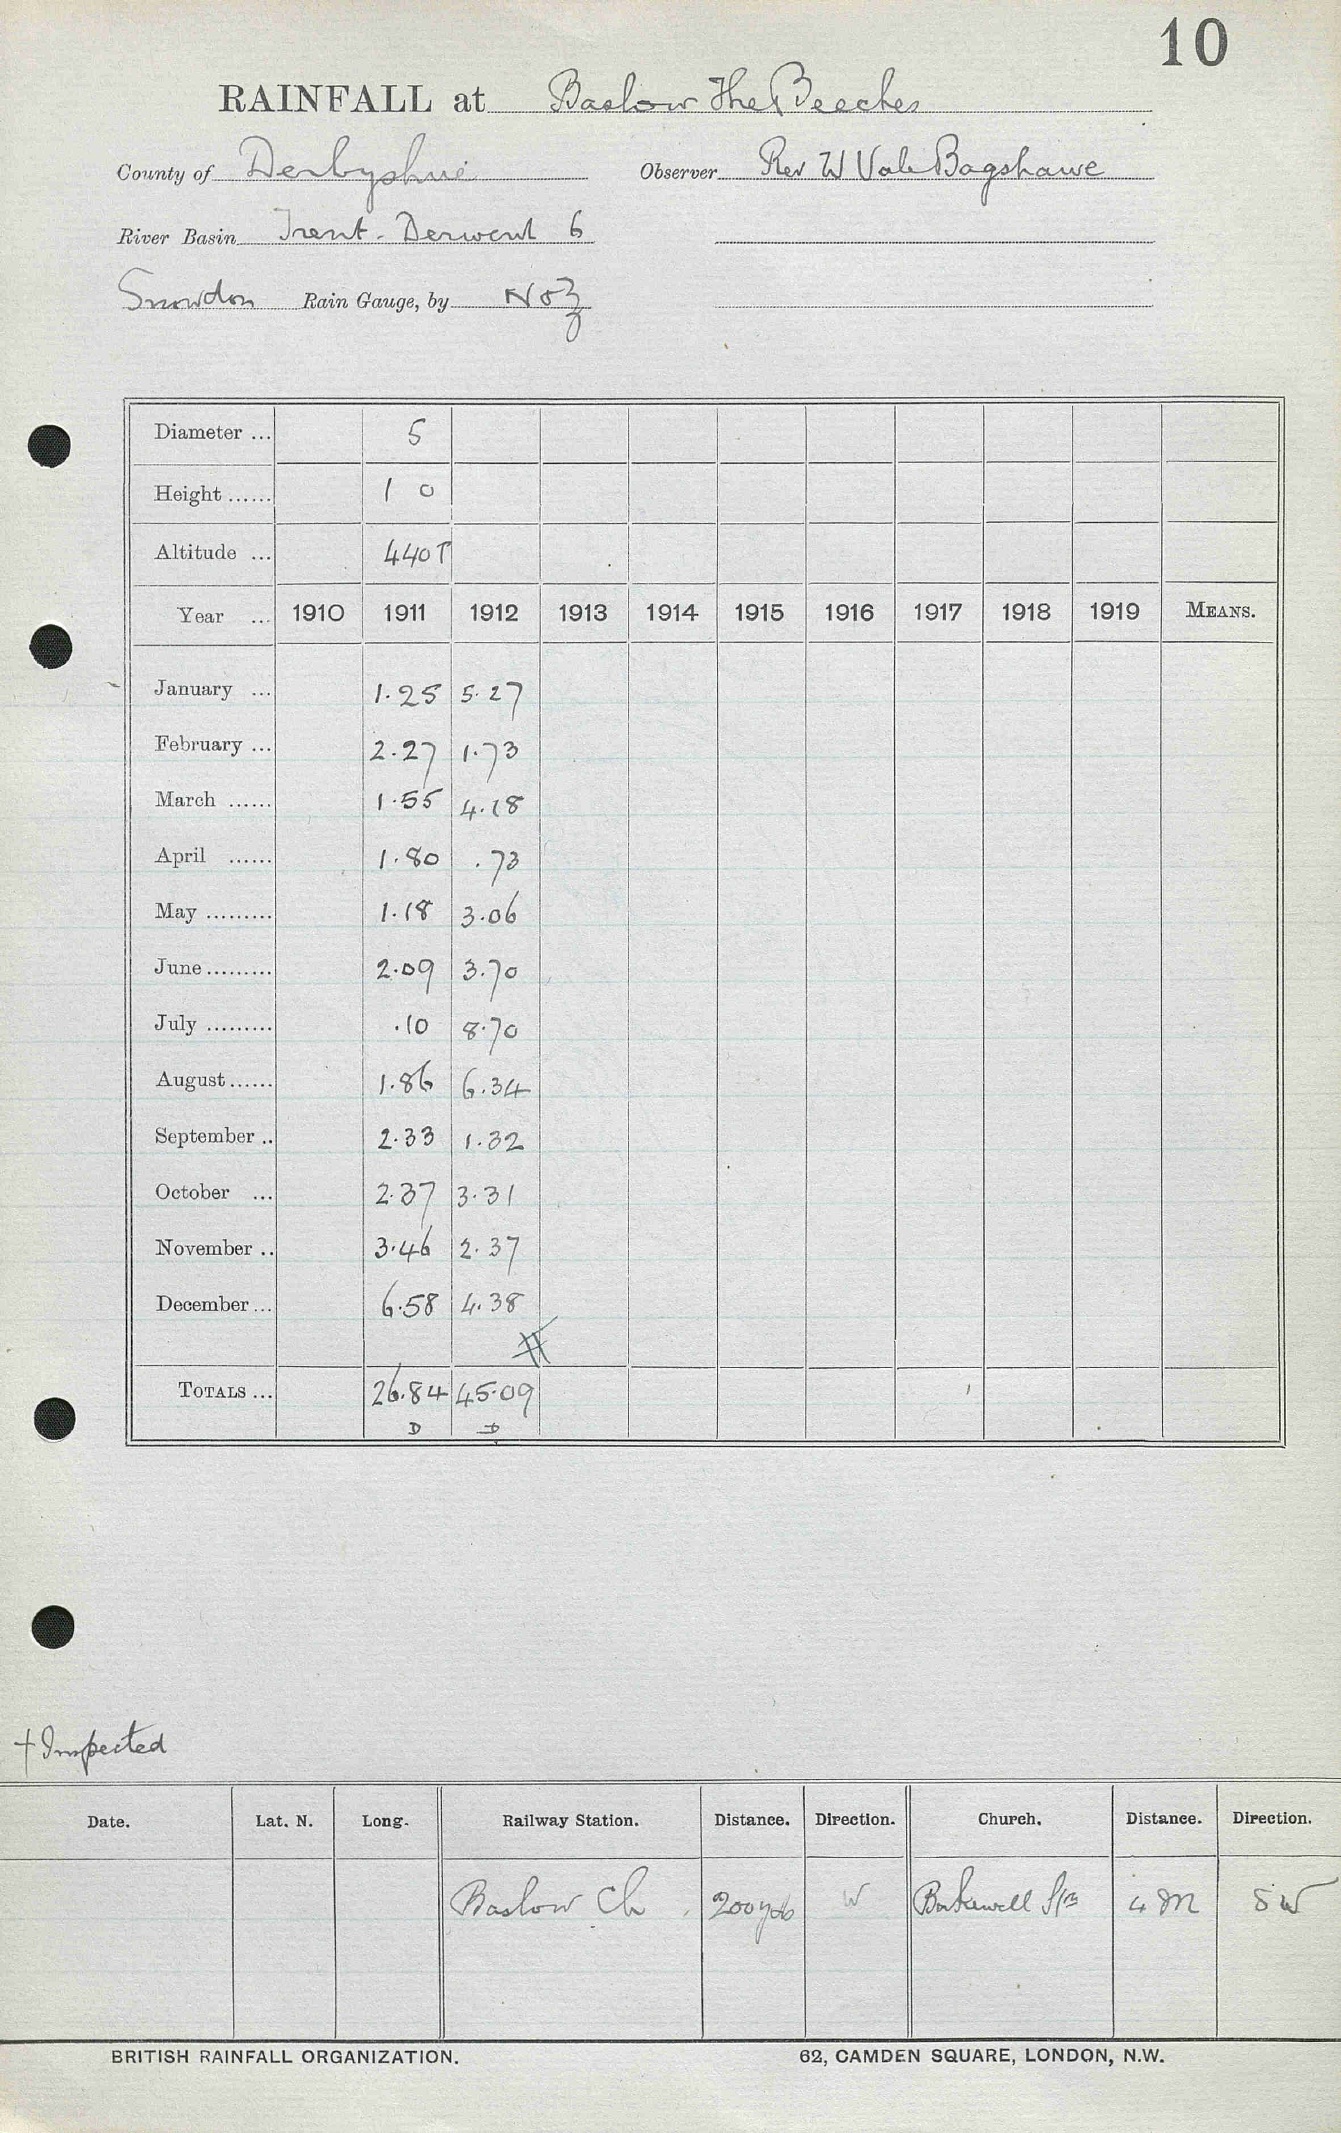 10
RAINFALL at Baslow The Beeches
County of Derbyshire Observer Rev W Vale Bagshawe
River Basin Trent - Derwent 6
Snowdon Rain Gauge, by N & Z
Diameter ... 5
Height ...... 1 0
Altitude ... 440 T
Year ... 1910 1911 1912 1913 1914 1915 1916 1917 1918 1919 MEANS.
January ... 1.25 5.27
February ... 2.27 1.73
March ...... 1.55 4.18
April ...... 1.80 .73
May ......... 1.18 3.06
June ......... 2.09 3.70
July ......... .10 8.70
August ...... 1.86 6.34
September .. 2.33 1.32
October ... 2.37 3.31
November .. 3.46 2.37
December ... 6.58 4.38
#
TOTALS ... 26.84 45.09
D D
† Inspected
Date. Lat. N. Long. Railway Station. Distance. Direction. Church. Distance. Direction.
Baslow Ch 200 yds W Bakewell Stn 4 M SW
BRITISH RAINFALL ORGANIZATION. 62, CAMDEN SQUARE, LONDON, N.W.